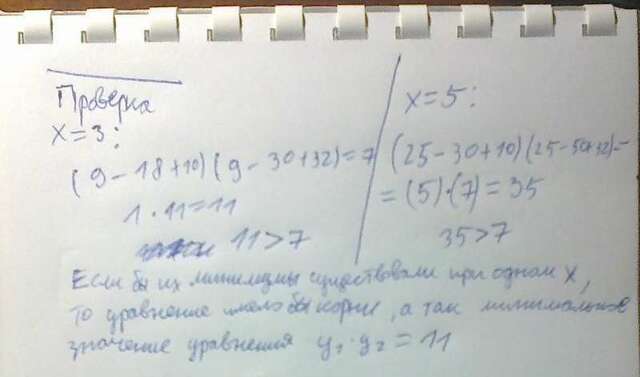 Проверка
x=3:
(9-18+10)(9-30+32)=7
1·11=11
11>7
x=5:
(25-30+10)(25-50+32)=
=(5)·(7)=35
35>7
Если бы их минимумы существовали при одном x,
то уравнение имело бы корни, а так минимальное
значение уравнения y₁·y₂=11